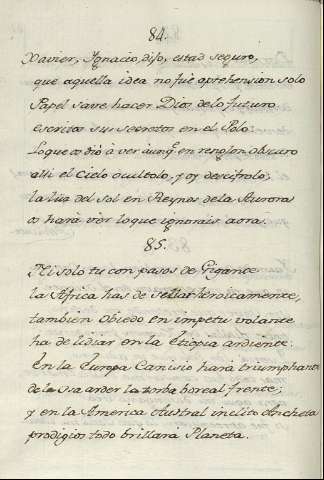 84.
Xavier, Ignacio, dijo, estad seguro,
que aquella idea no fuè aprehension solo
Papel save hacer Dios de lo futuro
escritos sus secretos en el Polo:
Lo que os diò à vèr aunq̃ en renglon obscuro
alli el Cielo ocultolo, y oy descifrolo;
la lùz del Sol en Reynos de la Aurora
os harà vèr lo que ignorais aora.
85.
Ni solo tu con pasos de Gigante
la Africa has de sellar heroicamente,
tambien Obiedo en impetu volante
ha de lidiar en la Etiopia ardiente:
En la Europa Canisio harà triumphante
de la Isa arder la torba boreal frente;
y en la America Austral inclito Ancheta
prodigios todo brillarà Planeta.